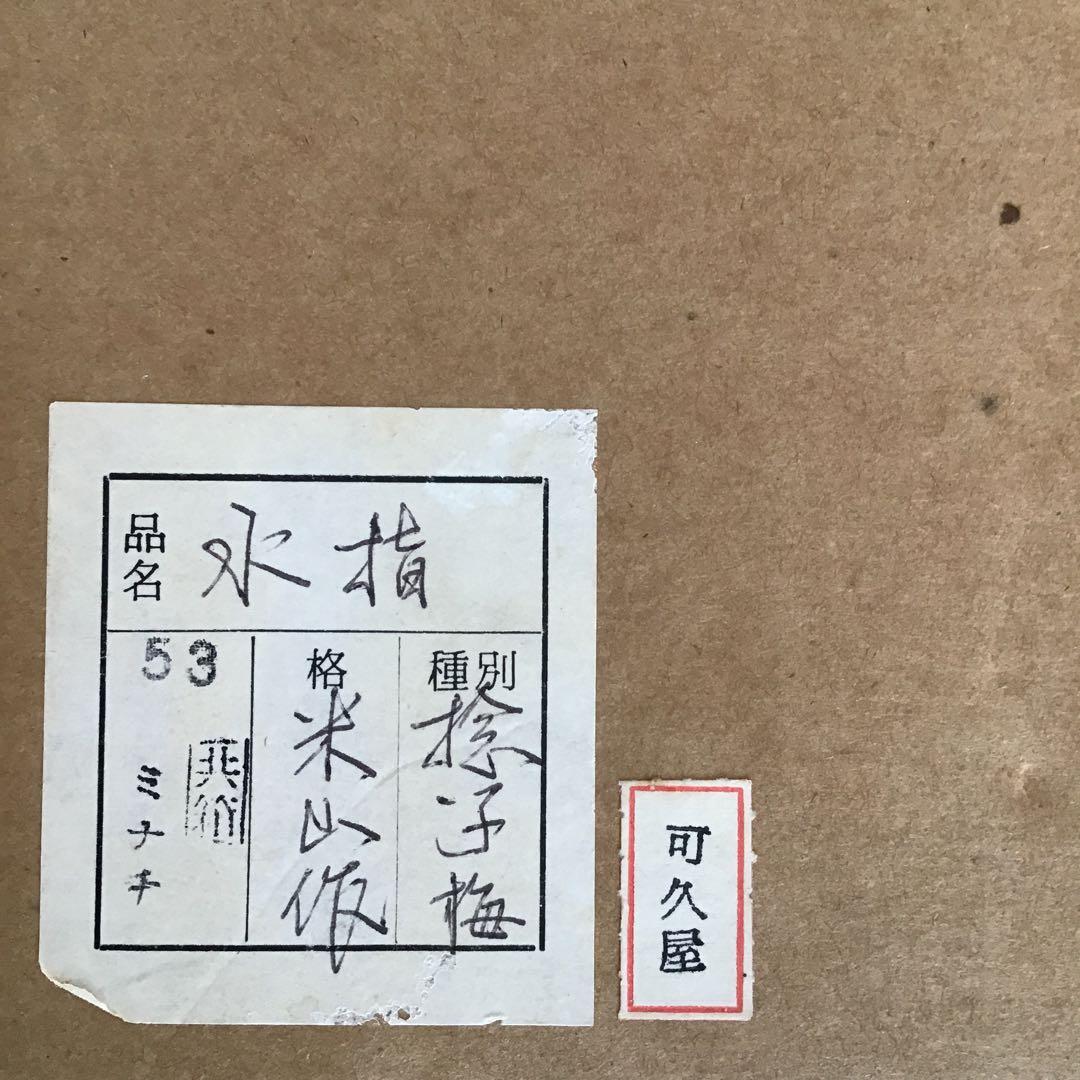 品名 水指
種別 捻子梅
格 米山作
53
共箱
ミナキ
可久屋